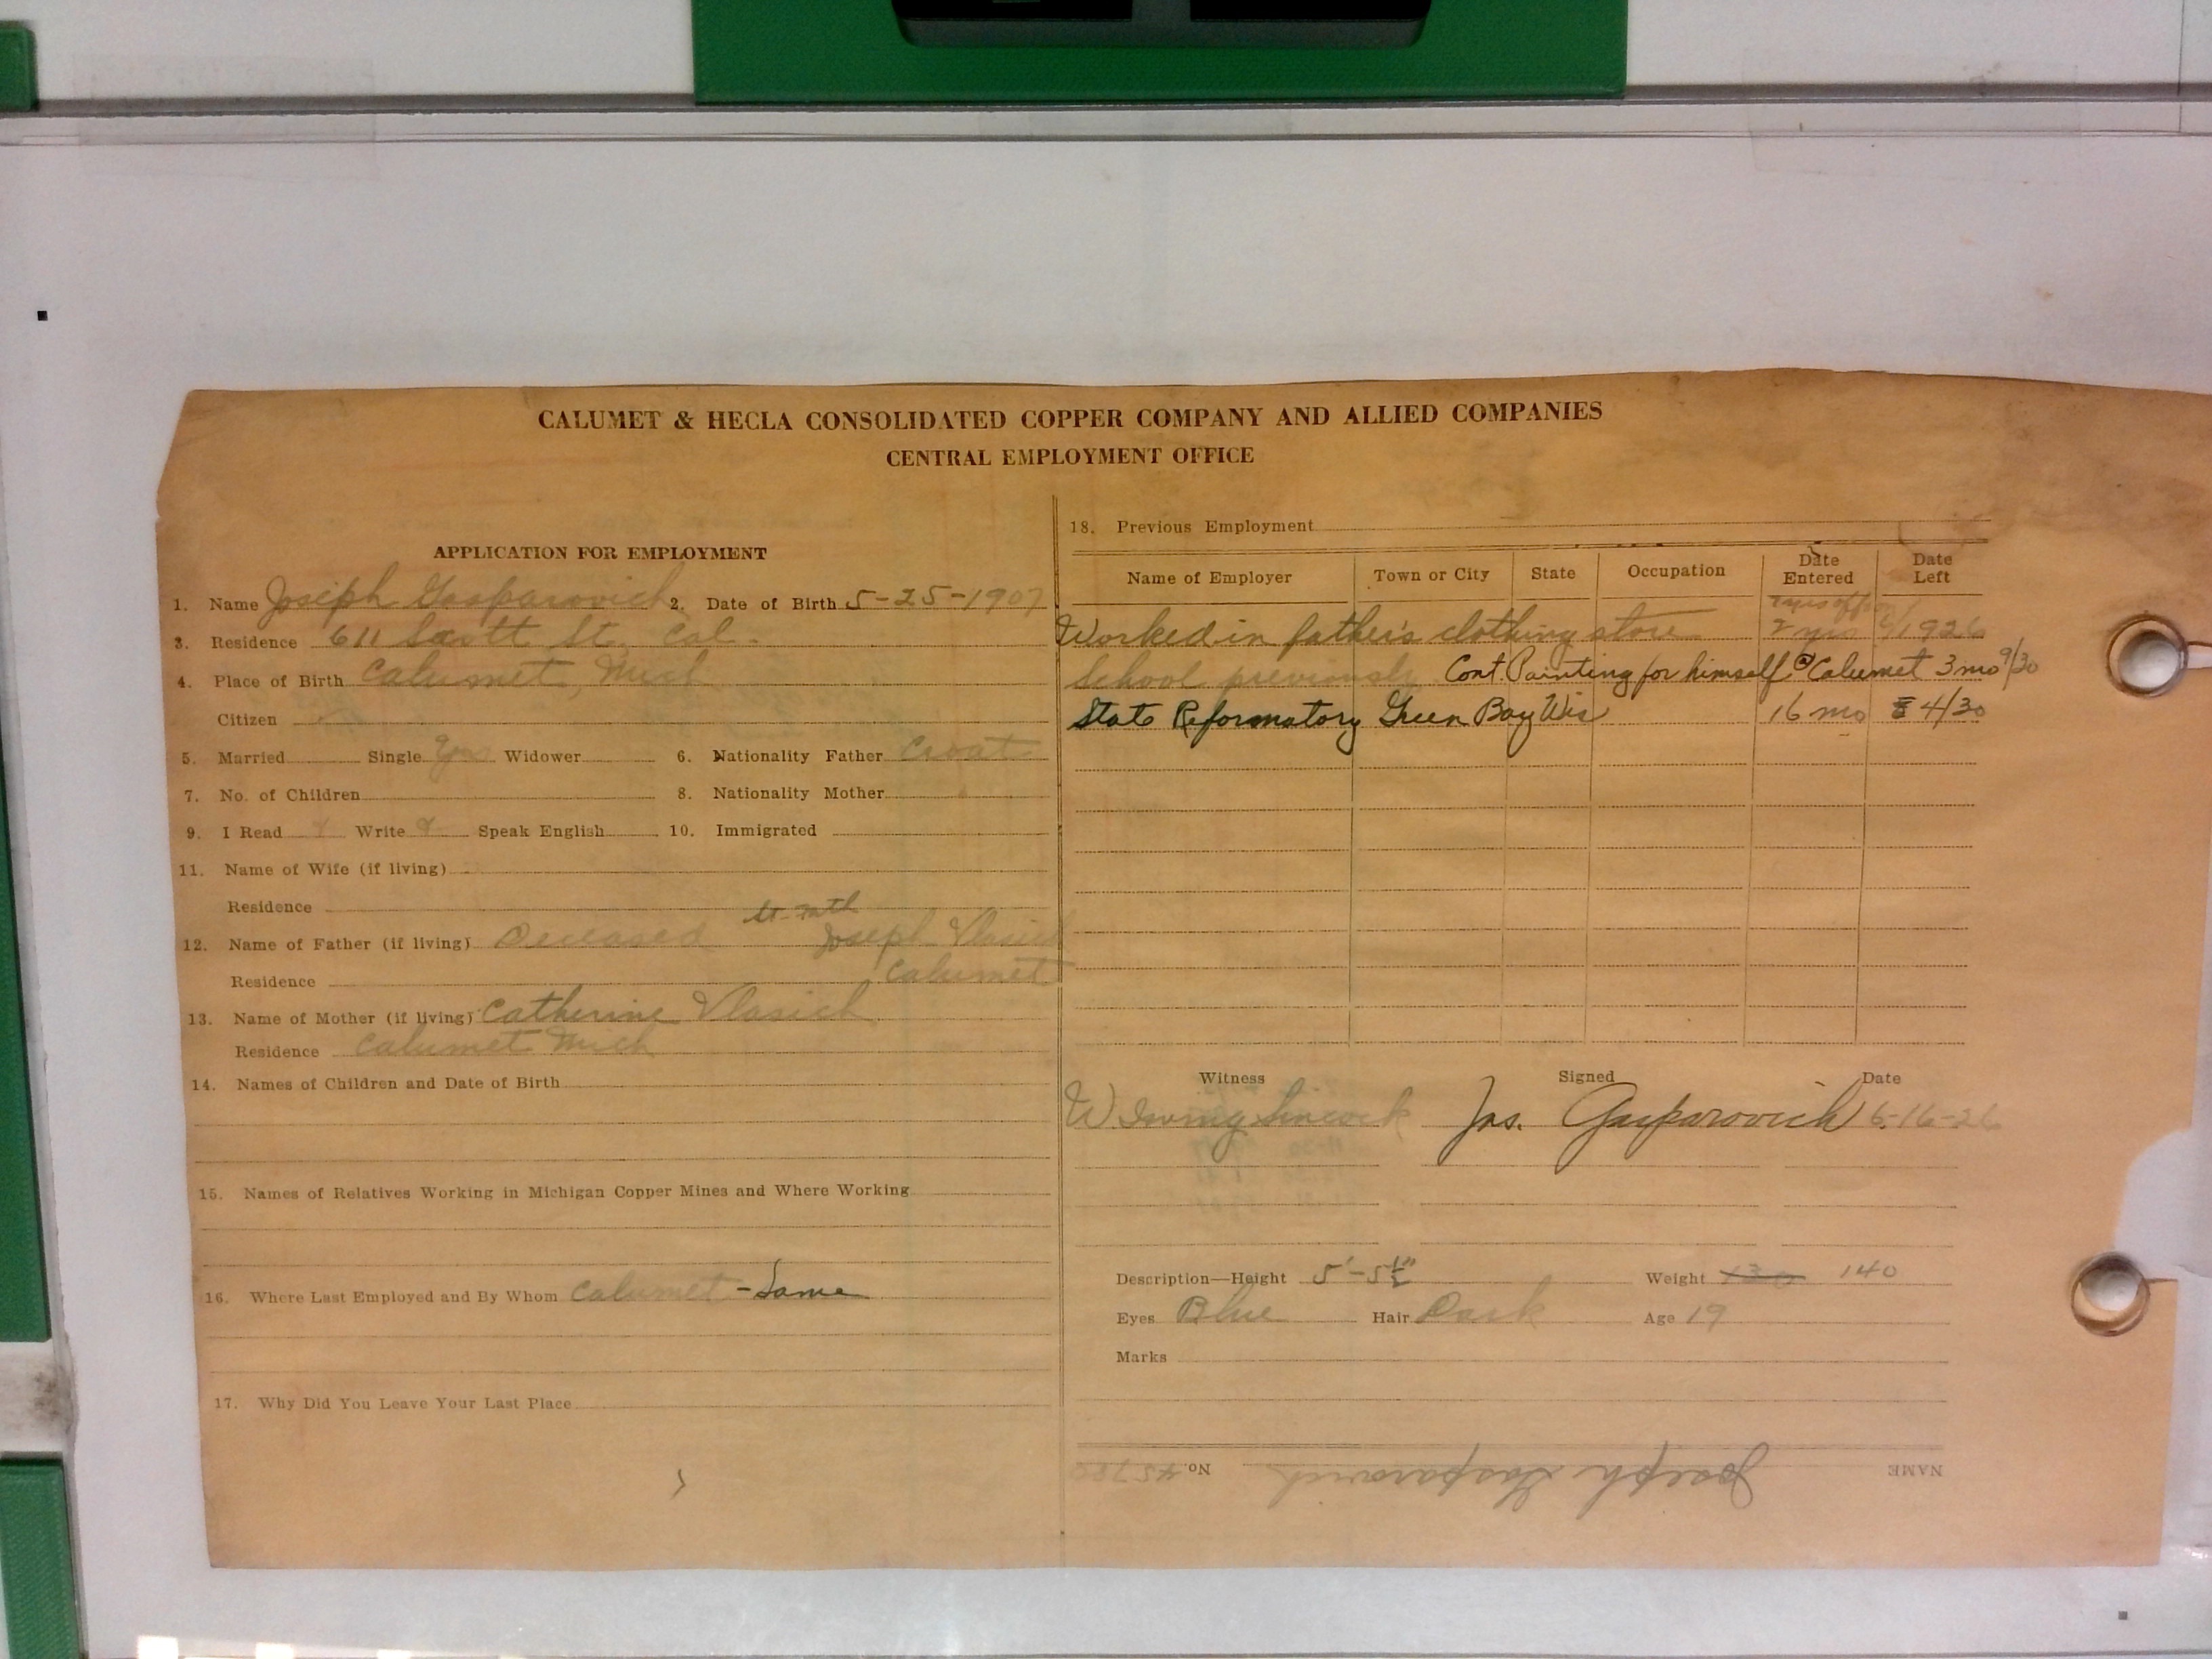 CALUMET & HECLA CONSOLIDATED COPPER COMPANY AND ALLIED COMPANIES
CENTRAL EMPLOYMENT OFFICE
APPLICATION FOR EMPLOYMENT
1. Name Joseph Gasparovich 2. Date of Birth 5-25-1907
3. Residence 611 Scott St. Cal.
4. Place of Birth Calumet, Mich
Citizen
5. Married Single Yes Widower 6. Nationality Father Croat
7. No. of Children 8. Nationality Mother
9. I Read Write Speak English 10. Immigrated
11. Name of Wife (if living)
Residence
12. Name of Father (if living) Deceased Joseph Vlasich
Residence Calumet
13. Name of Mother (if living) Catherine Vlasich
Residence Calumet Mich
14. Names of Children and Date of Birth
15. Names of Relatives Working in Michigan Copper Mines and Where Working
16. Where Last Employed and By Whom Calumet - Same
17. Why Did You Leave Your Last Place
18. Previous Employment
Name of Employer Town or City State Occupation Date Entered Date Left
Worked in father's clothing store 2 yrs 6/1926
School previously Cont. Painting for himself @ Calumet 3 mo 9/30
State Reformatory Green Bay Wis 16 mo 4/30
Witness Signed Date
W. Irving Jos. Gasparovich 6-16-26
Description—Height 5'-5½" Weight 130 140
Eyes Blue Hair Dark Age 19
Marks
NAME Joseph Gasparovich No.